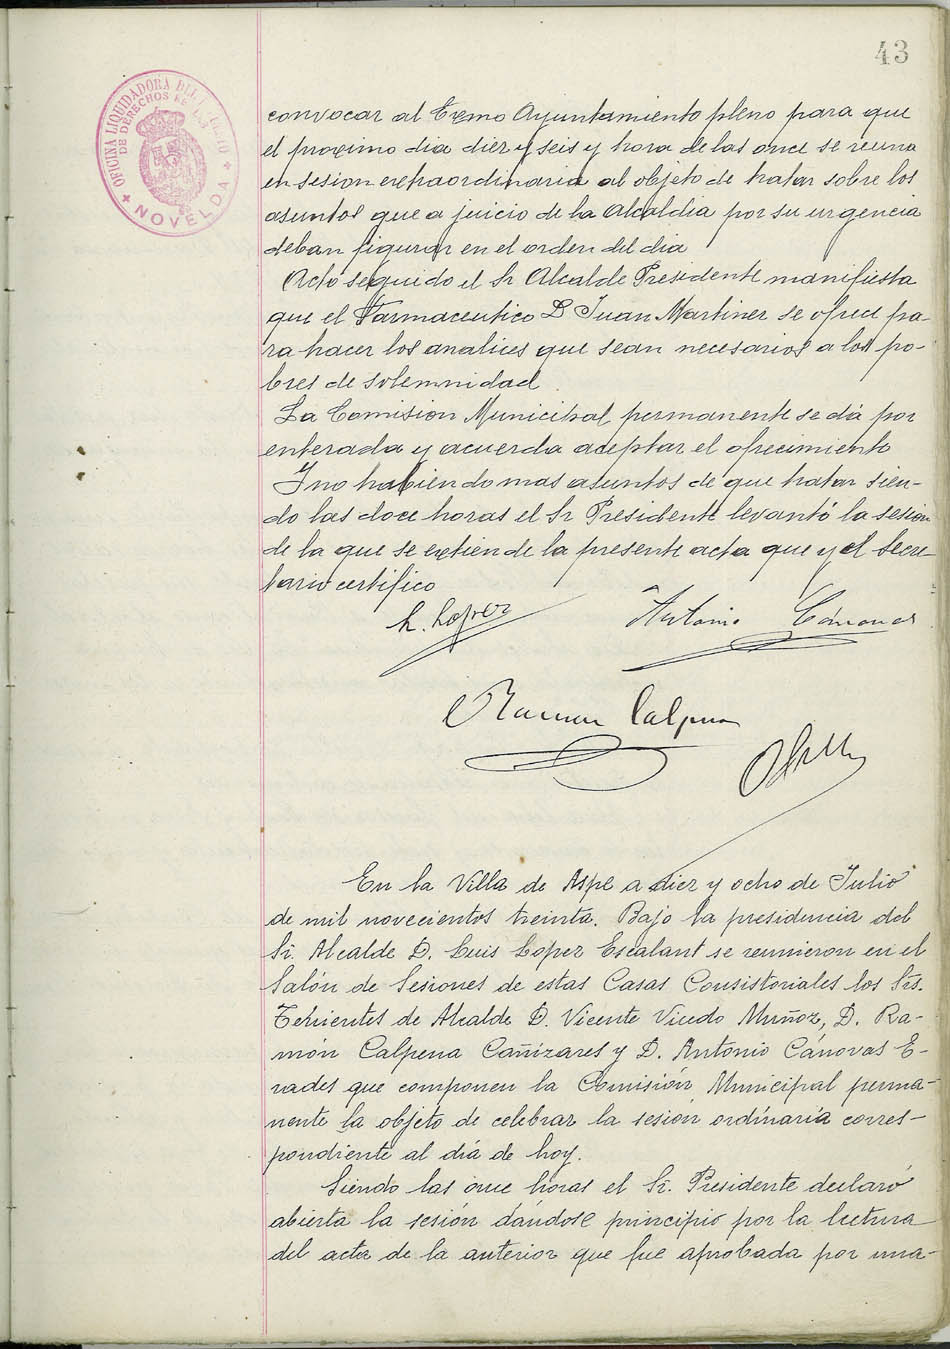 43
OFICINA LIQUIDADORA DEL
DE DERECHOS REALES
NOVELDA
convocar al Exmo Ayuntamiento pleno para que
el proximo dia diez y seis y hora de las once se reuna
en sesion extraordinaria al objeto de tratar sobre los
asuntos que a juicio de la Alcaldia por su urgencia
deban figurar en el orden del dia
Acto seguido el Sr Alcalde Presidente manifiesta
que el Farmaceutico D Juan Martinez se ofrece pa-
ra hacer los analices que sean necesarios a los po-
bres de solemnidad.
La Comision Municipal permanente se dá por
enterada y acuerda aceptar el ofrecimiento
Y no habiendo mas asuntos de que tratar sien-
do las doce horas el Sr Presidente levantó la sesion
de la que se extiende la presente acta que yo el Secre-
tario certifico
L. Lopez
Antonio Cánovas
Ramon Calpena
En la Villa de Aspe a diez y ocho de Julio
de mil novecientos treinta. Bajo la presidencia del
Sr. Alcalde D. Luis Lopez Escalant se reunieron en el
Salón de Sesiones de estas Casas Consistoriales los Srs.
Tenientes de Alcalde D. Vicente Vicedo Muñoz, D. Ra-
món Calpena Cañizares y D. Antonio Cánovas E-
rades que componen la Comisión Municipal perma-
nente la objeto de celebrar la sesión ordinaria corres-
pondiente al día de hoy.
Siendo las once horas el Sr. Presidente declaró
abierta la sesión dándose principio por la lectura
del acta de la anterior que fue aprobada por una-